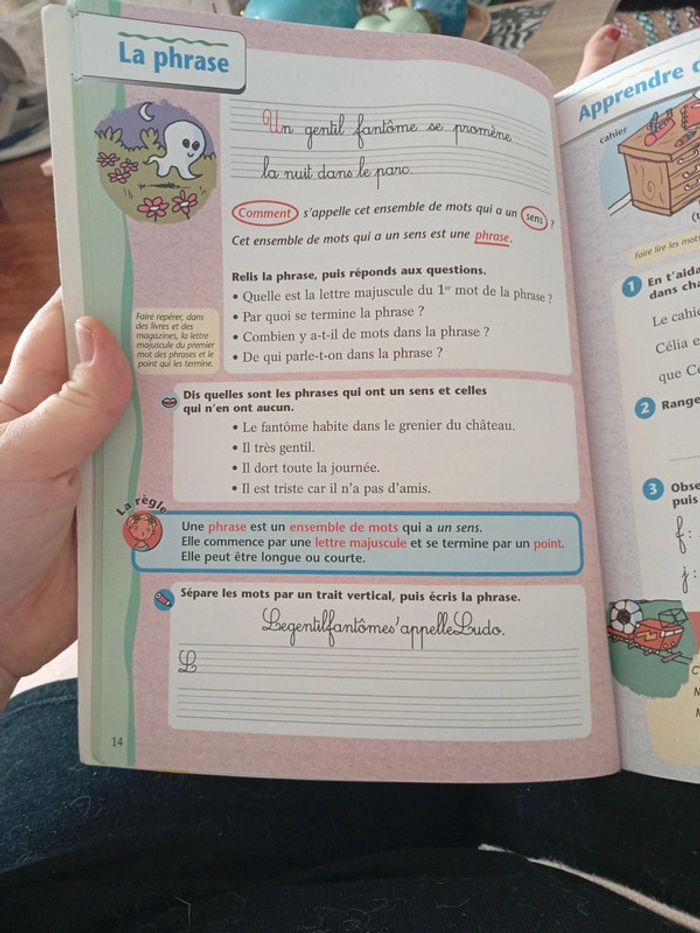 La phrase
Un gentil fantôme se promène
la nuit dans le parc.
Comment s'appelle cet ensemble de mots qui a un sens ?
Cet ensemble de mots qui a un sens est une phrase.
Relis la phrase, puis réponds aux questions.
• Quelle est la lettre majuscule du 1er mot de la phrase ?
• Par quoi se termine la phrase ?
• Combien y a-t-il de mots dans la phrase ?
• De qui parle-t-on dans la phrase ?
Faire repérer, dans
des livres et des
magazines, la lettre
majuscule du premier
mot des phrases et le
point qui les termine.
Dis quelles sont les phrases qui ont un sens et celles
qui n'en ont aucun.
• Le fantôme habite dans le grenier du château.
• Il très gentil.
• Il dort toute la journée.
• Il est triste car il n'a pas d'amis.
La règle
Une phrase est un ensemble de mots qui a un sens.
Elle commence par une lettre majuscule et se termine par un point.
Elle peut être longue ou courte.
Sépare les mots par un trait vertical, puis écris la phrase.
Legentilfantômes'appelleLudo.
L
14
Apprendre
cahier
Faire lire les mots
1 En t'aida
dans cha
Le cahie
Célia e
que Cé
2 Range
3 Obse
puis
f:
j: